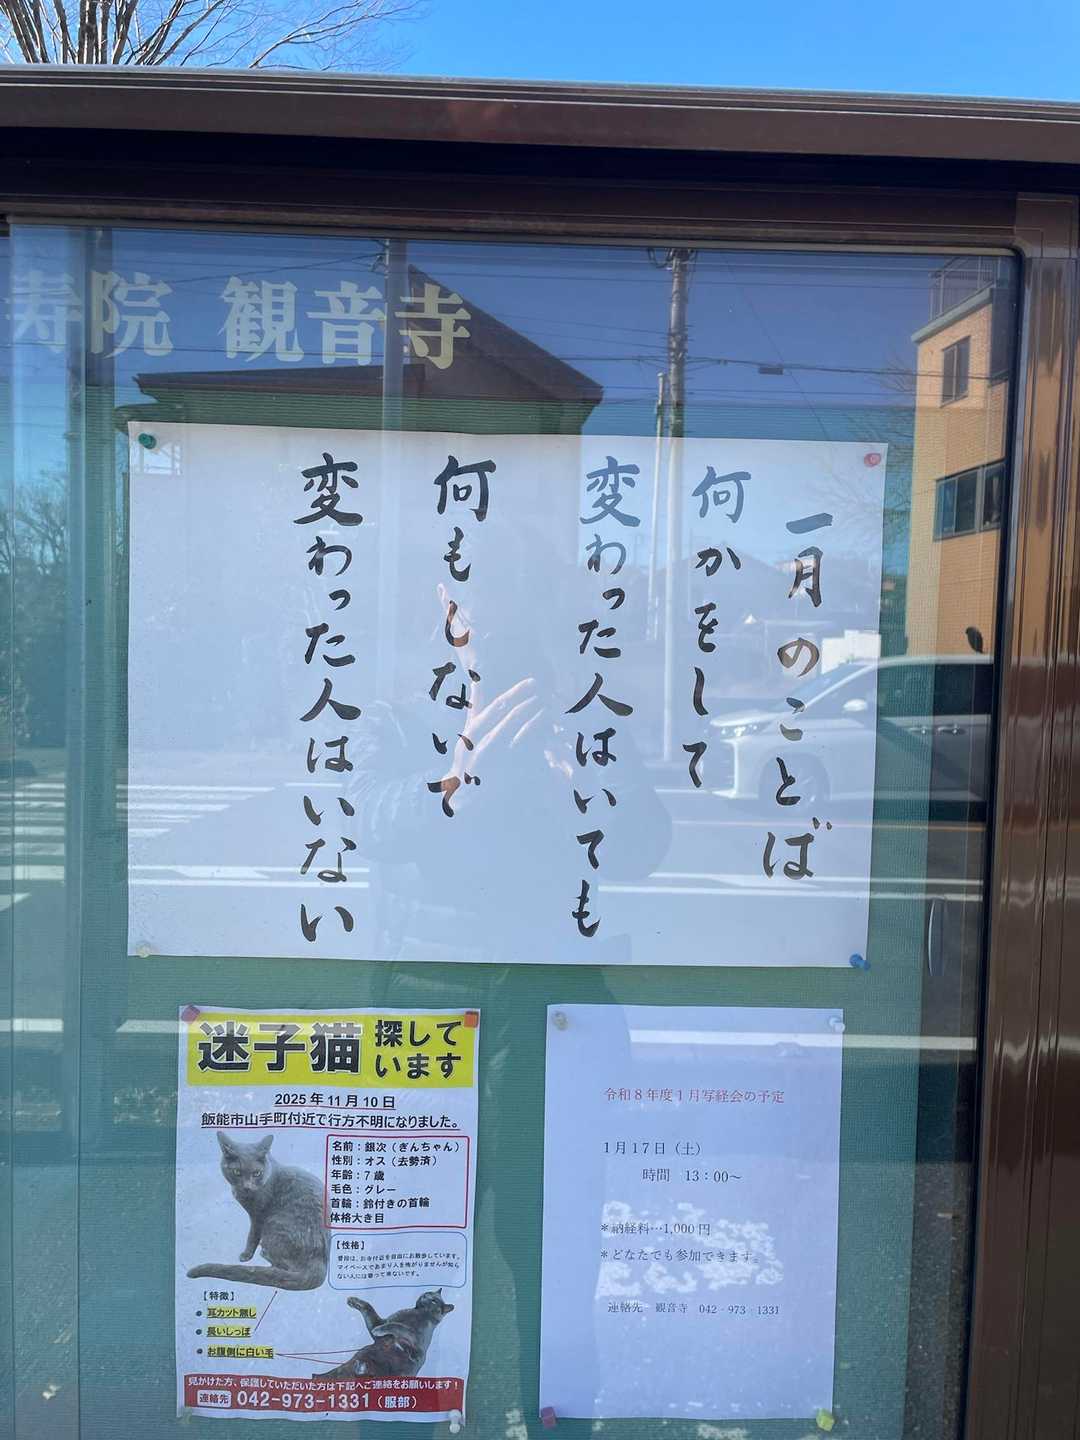 寿院 観音寺
一月のことば
何かをして
変わった人はいても
何もしないで
変わった人はいない
迷子猫 探しています
2025年11月10日
飯能市山手町付近で行方不明になりました。
名前：銀次（ぎんちゃん）
性別：オス（去勢済）
年齢：7歳
毛色：グレー
首輪：鈴付きの首輪
体格大き目
【性格】
普段は、お寺付近を自由にお散歩しています。
マイペースであまり人を怖がりませんが知ら
ない人には寄って来ないです。
【特徴】
● 耳カット無し
● 長いしっぽ
● お腹側に白い毛
見かけた方、保護していただいた方は下記へご連絡をお願いします！
連絡先 042-973-1331（服部）
令和８年度１月写経会の予定
１月17日（土）
時間 13：00～
＊納経料…1,000円
＊どなたでも参加できます。
連絡先 観音寺 042‐973‐1331